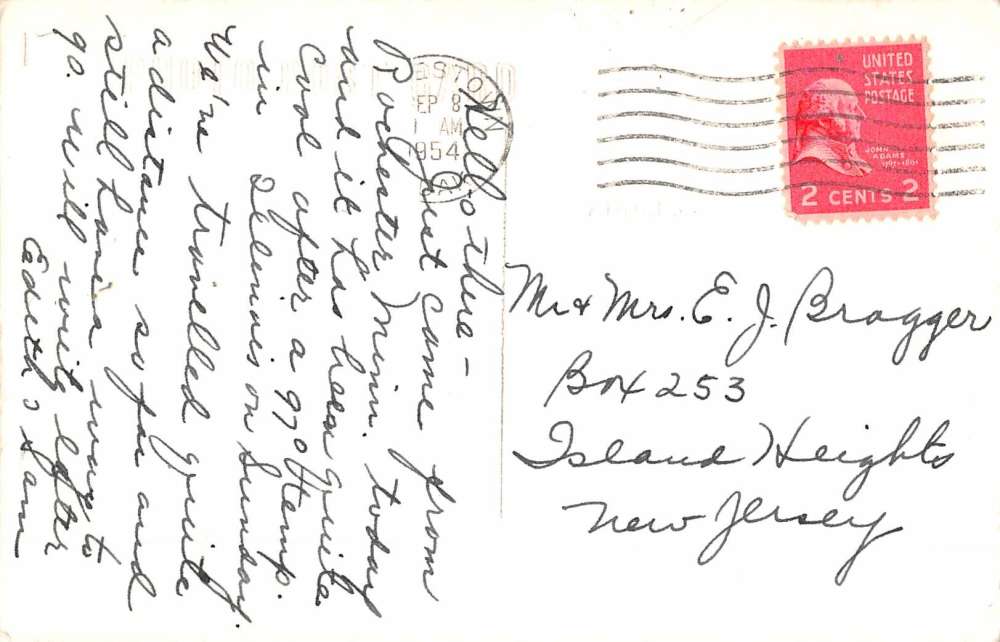 Hello there –
Just came from
Rochester Minn. today
and it has been quite
cool after a 97° temp.
in Illinois on Sunday.
We've travelled quite
a distance so far and
still have a ways to
go. Will write later
Edith & Sam
SEP 8
AM
1954
UNITED
STATES
POSTAGE
JOHN
ADAMS
2 CENTS 2
Mr & Mrs. E. J. Bragger
Box 253
Island Heights
New Jersey